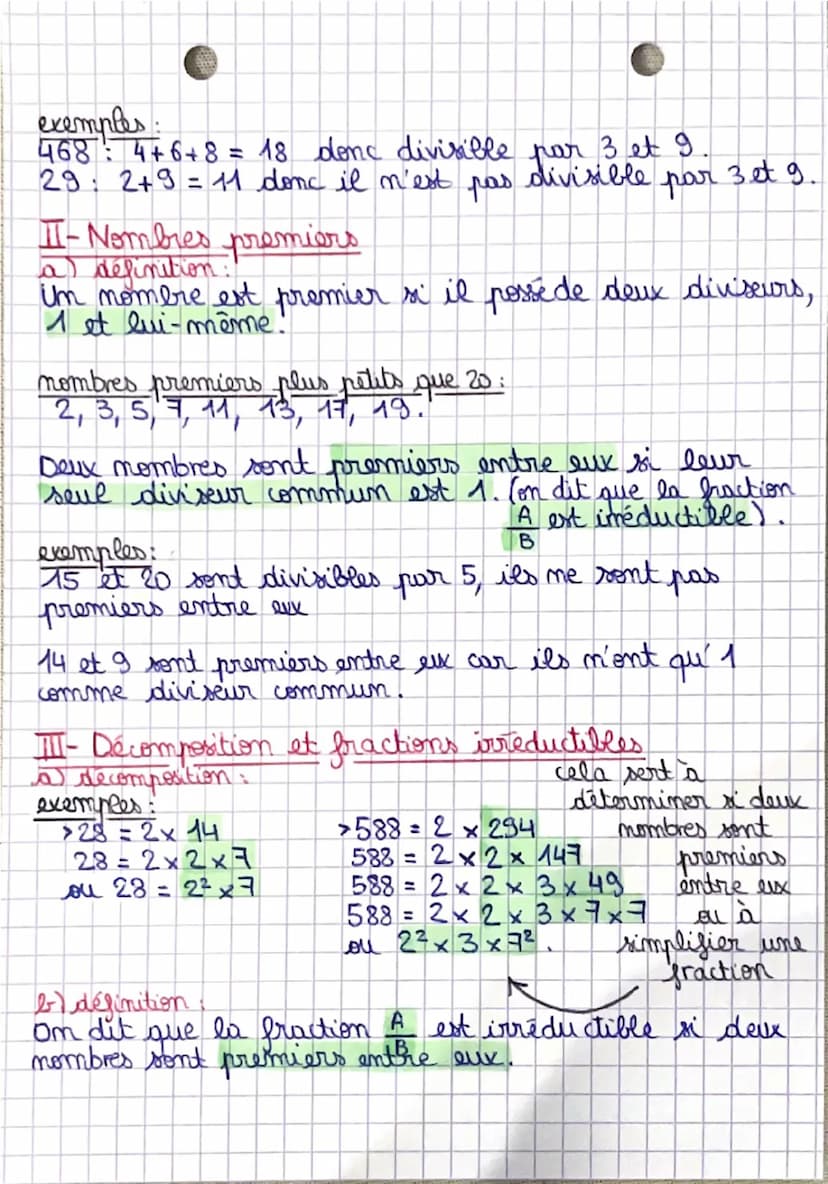 exemples :
468 : 4+6+8 = 18 donc divisible par 3 et 9.
29 : 2+9 = 11 donc il n'est pas divisible par 3 et 9.
II- Nombres premiers
a) définition :
Un nombre est premier si il possède deux diviseurs,
1 et lui-même.
nombres premiers plus petits que 20 :
2, 3, 5, 7, 11, 13, 17, 19.
Deux nombres sont premiers entre eux si leur
seul diviseur commun est 1. (on dit que la fraction
A/B est irréductible).
exemples :
15 et 20 sont divisibles par 5, ils ne sont pas
premiers entre eux
14 et 9 sont premiers entre eux car ils n'ont qu'1
comme diviseur commun.
III- Décomposition et fractions irréductibles
a) décomposition :
exemples :
>28 = 2 x 14
28 = 2 x 2 x 7
ou 28 = 2² x 7
>588 = 2 x 294
588 = 2 x 2 x 147
588 = 2 x 2 x 3 x 49
588 = 2 x 2 x 3 x 7 x 7
ou 2² x 3 x 7².
cela sert à
déterminer si deux
nombres sont
premiers
entre eux
ou à
simplifier une
fraction
b) définition :
On dit que la fraction A/B est irréductible si deux
nombres sont premiers entre eux.